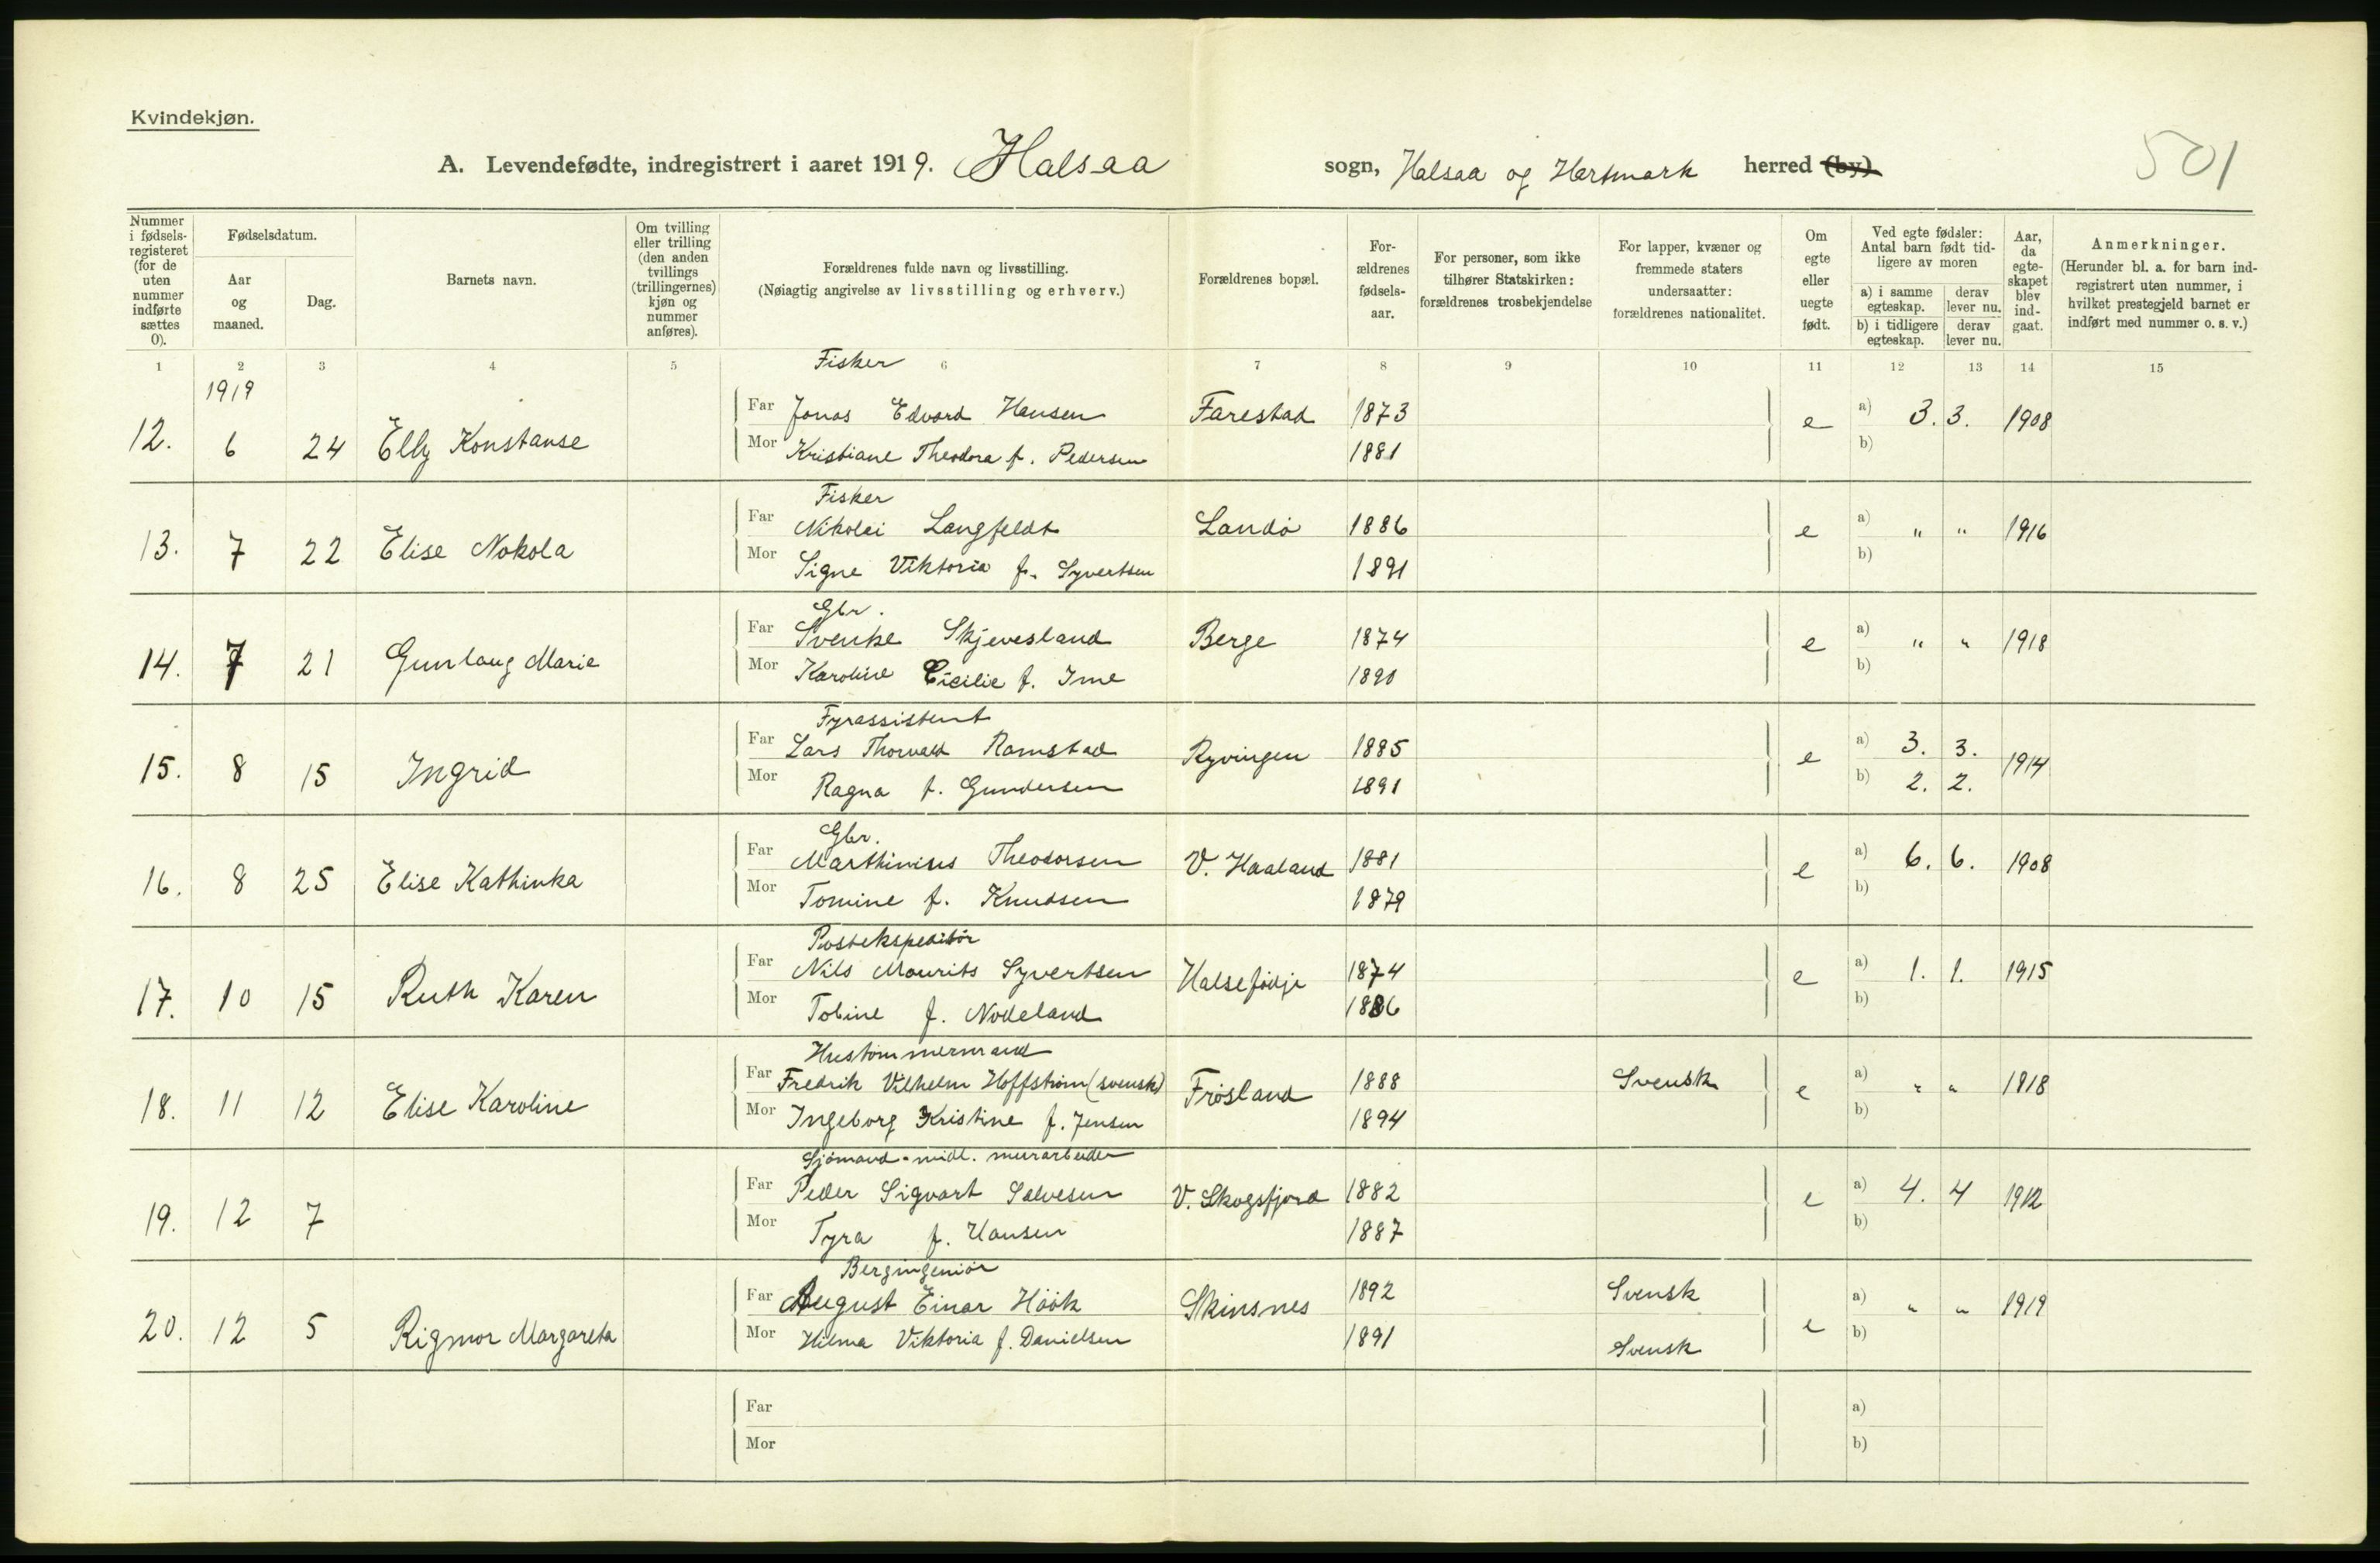 Kvindekjøn.
A. Levendefødte, indregistrert i aaret 1919. Halsaa sogn, Halsaa og Hartmark herred (by) 501
Nummer i fødselsregisteret (for de uten nummer indførte sættes 0).
Fødselsdatum.
Aar og maaned.
Dag.
Barnets navn.
Om tvilling eller trilling (den anden tvillings (trillingernes) kjøn og nummer anføres).
Forældrenes fulde navn og livsstilling.
(Nøiagtig angivelse av livsstilling og erhverv.)
Forældrenes bopæl.
Forældrenes fødselsaar.
For personer, som ikke tilhører Statskirken: forældrenes trosbekjendelse
For lapper, kvæner og fremmede staters undersaatter: forældrenes nationalitet.
Om egte eller uegte født.
Ved egte fødsler: Antal barn født tidligere av moren
a) i samme egteskap. derav lever nu.
b) i tidligere egteskap. derav lever nu.
Aar, da egteskapet blev indgaat.
Anmerkninger.
(Herunder bl. a. for barn indregistrert uten nummer, i hvilket prestegjeld barnet er indført med nummer o. s. v.)
1 2 3 4 5 6 7 8 9 10 11 12 13 14 15
1919
Fisker
12. 6 24 Elly Konstanse
Far Jonas Edvard Hansen Farestad 1873 e a) 3. 3. 1908
Mor Kristiane Theodora f. Pedersen 1881 b)
Fisker
13. 7 22 Elise Nokola
Far Nikolai Langfeldt Landø 1886 e a) " " 1916
Mor Signe Viktoria f. Syvertsen 1891 b)
Gbr.
14. 7 21 Gunlaug Marie
Far Svenke Skjevesland Berge 1874 e a) " " 1918
Mor Karoline Cicilie f. Ime 1890 b)
Fyrassistent
15. 8 15 Ingrid
Far Lars Thorvald Ramstad Ryvingen 1885 e a) 3. 3. 1914
Mor Ragna f. Gundersen 1891 b) 2. 2.
Gbr.
16. 8 25 Elise Kathinka
Far Marthinius Theodorsen V. Haaland 1881 e a) 6. 6. 1908
Mor Tomine f. Knudsen 1879 b)
Postekspeditør
17. 10 15 Ruth Karen
Far Nils Mourits Syvertsen 1874 e a) 1. 1. 1915
Mor Tobine f. Nodeland 1886 b)
Hustømmermand
18. 11 12 Elise Karoline
Far Fredrik Vilhelm Hoffstrøm (svensk) Frøsland 1888 Svensk e a) " " 1918
Mor Ingeborg Kristine f. Jensen 1894 b)
Sjømand - midl. murarbeider
19. 12 7
Far Peder Sigvart Salvesen V. Skogsfjord 1882 e a) 4. 4 1912
Mor Tyra f. Hansen 1887 b)
Bergingeniør
20. 12 5 Rigmor Margareta
Far August Einar Höök Skinsnes 1892 Svensk e a) " " 1919
Mor Hilma Viktoria f. Danielsen 1891 Svensk b)
Far a)
Mor b)